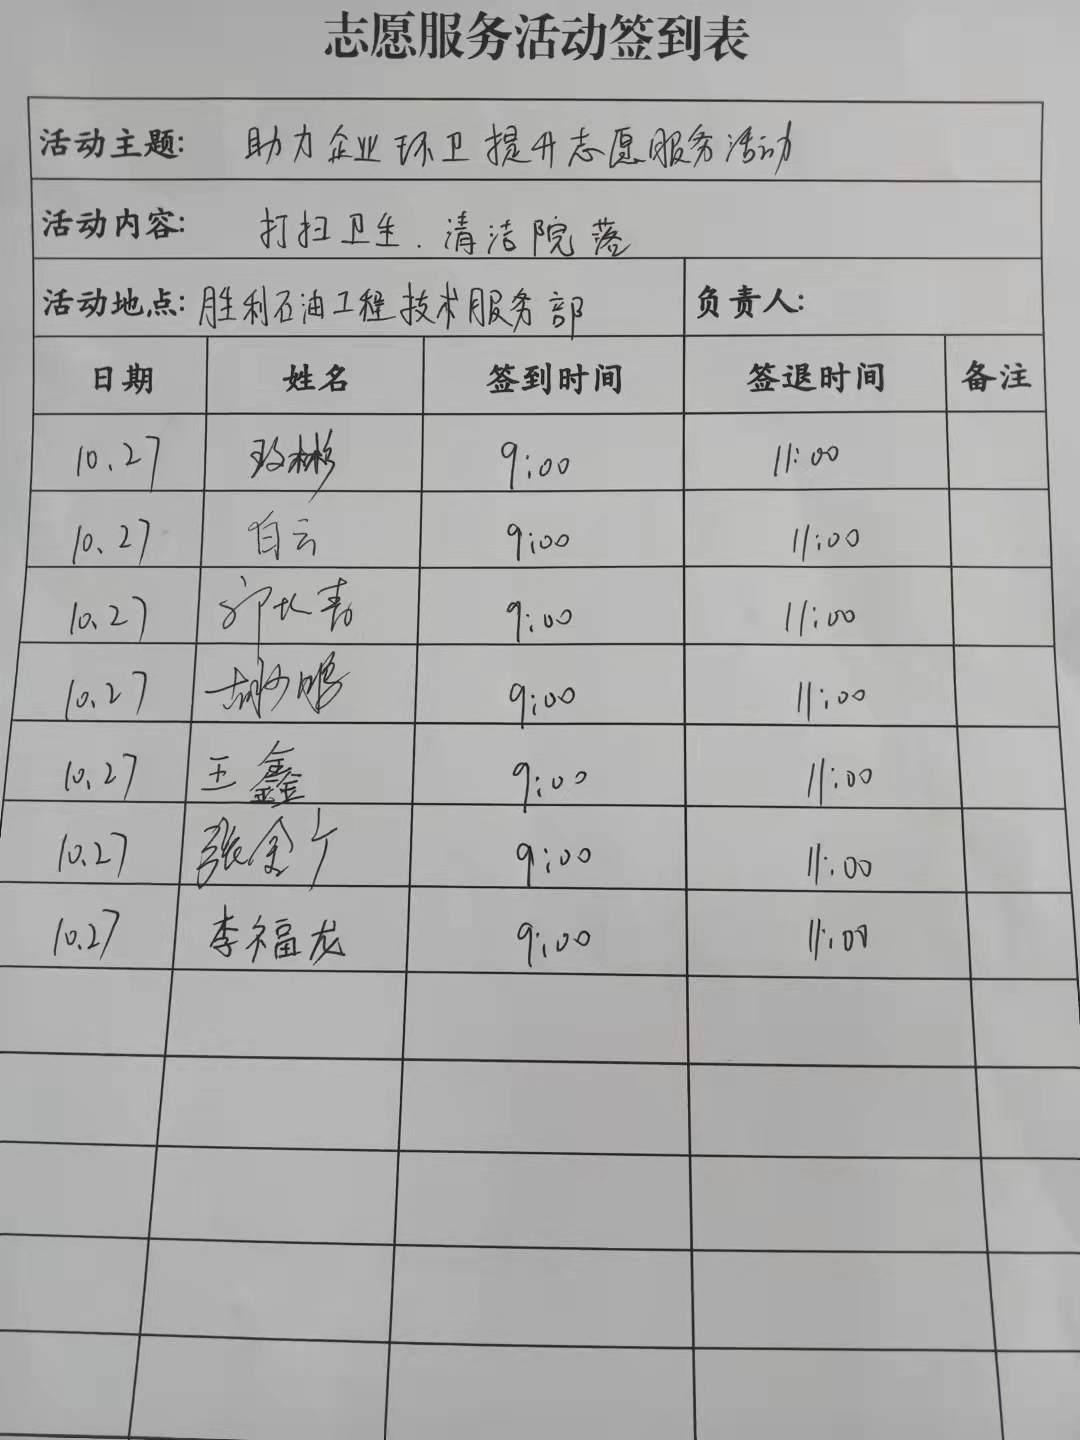 志愿服务活动签到表
活动主题: 助力企业环卫提升志愿服务活动
活动内容: 打扫卫生.清洁院落
活动地点: 胜利石油工程技术服务部 负责人:
日期 姓名 签到时间 签退时间 备注
10.27 9:00 11:00
10.27 白云 9:00 11:00
10.27 9:00 11:00
10.27 9:00 11:00
10.27 王鑫 9:00 11:00
10.27 张金 9:00 11:00
10.27 李福龙 9:00 11:00